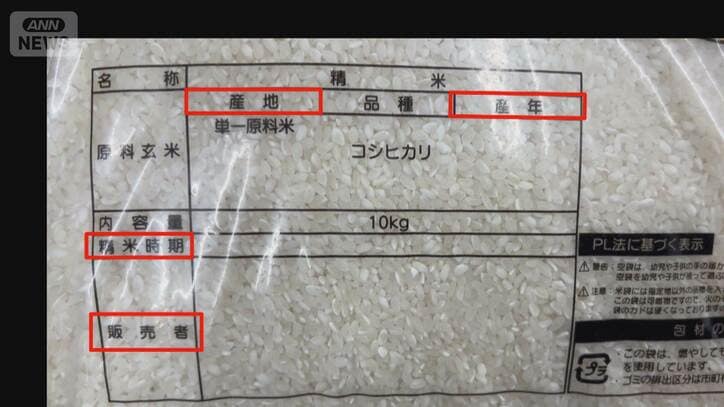 ANN
NEWS
名称 精米
産地 品種 産年
原料玄米 単一原料米
コシヒカリ
内容量 10kg
精米時期
販売者
PL法に基づく表示
警告：空袋は、幼児や子供の手の届か
注意：
この袋は可燃物ですので、火の
包材の
プラ
・この袋は、燃やしても
を使用しています。
・ゴミの排出区分は市町村